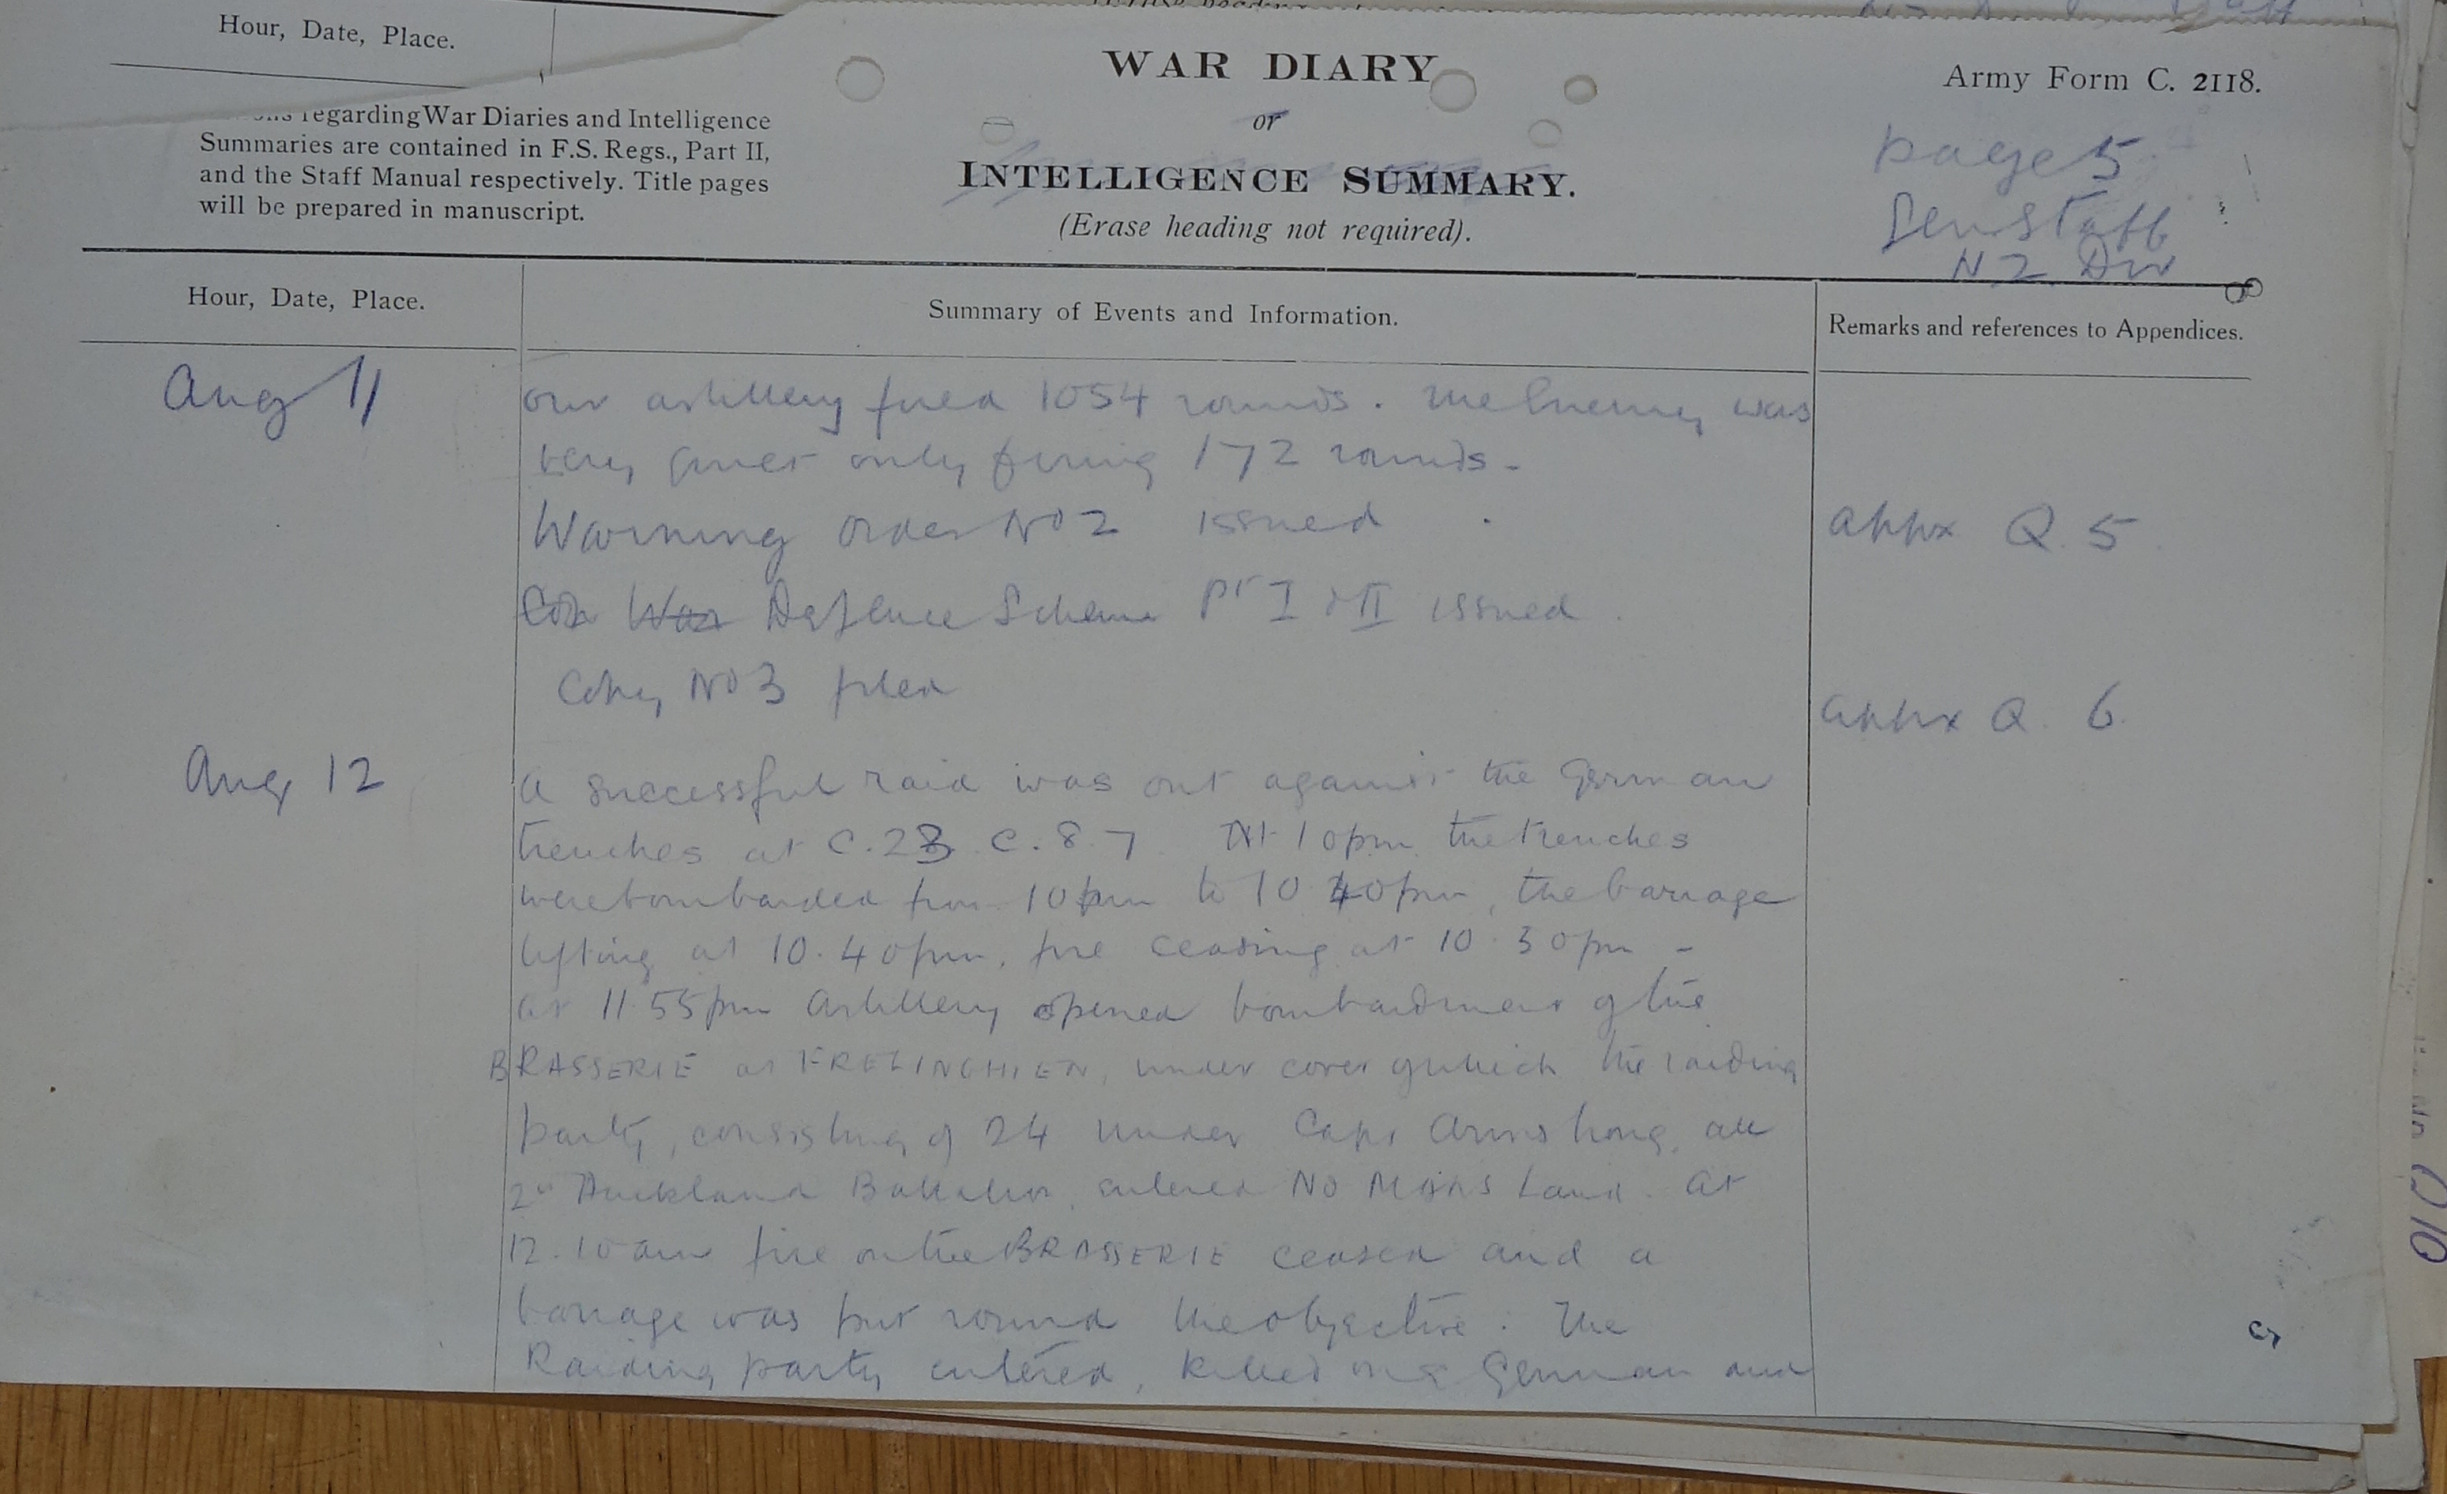 Hour, Date, Place.
WAR DIARY
or
INTELLIGENCE SUMMARY.
(Erase heading not required).
Army Form C. 2118.
regarding War Diaries and Intelligence
Summaries are contained in F.S. Regs., Part II,
and the Staff Manual respectively. Title pages
will be prepared in manuscript.
page 5
Gen Staff
N Z Div
Hour, Date, Place.
Summary of Events and Information.
Remarks and references to Appendices.
Aug 11
Our artillery fired 1054 rounds. The Enemy was
very quiet only firing 172 rounds -
Warning Order No 2 issued
Appx Q. 5
War Defence Scheme Pt I & II issued.
Copy No 3 filed
Appx Q. 6
Aug 12
A successful raid was out against the German
trenches at C.23 C.8.7 At 10pm the trenches
were bombarded from 10pm to 10 40pm, the barrage
lifting at 10.40pm, fire ceasing at 10.50pm -
At 11.55pm Artillery opened bombardment of the
BRASSERIE at FRELINGHIEN, under cover of which the raiding
party, consisting of 24 under Capt Armstrong, all
2nd Auckland Battalion, entered No Mans Land. At
12.10am fire on the BRASSERIE ceased and a
barrage was put round the objective. The
Raiding party entered, killed one German and